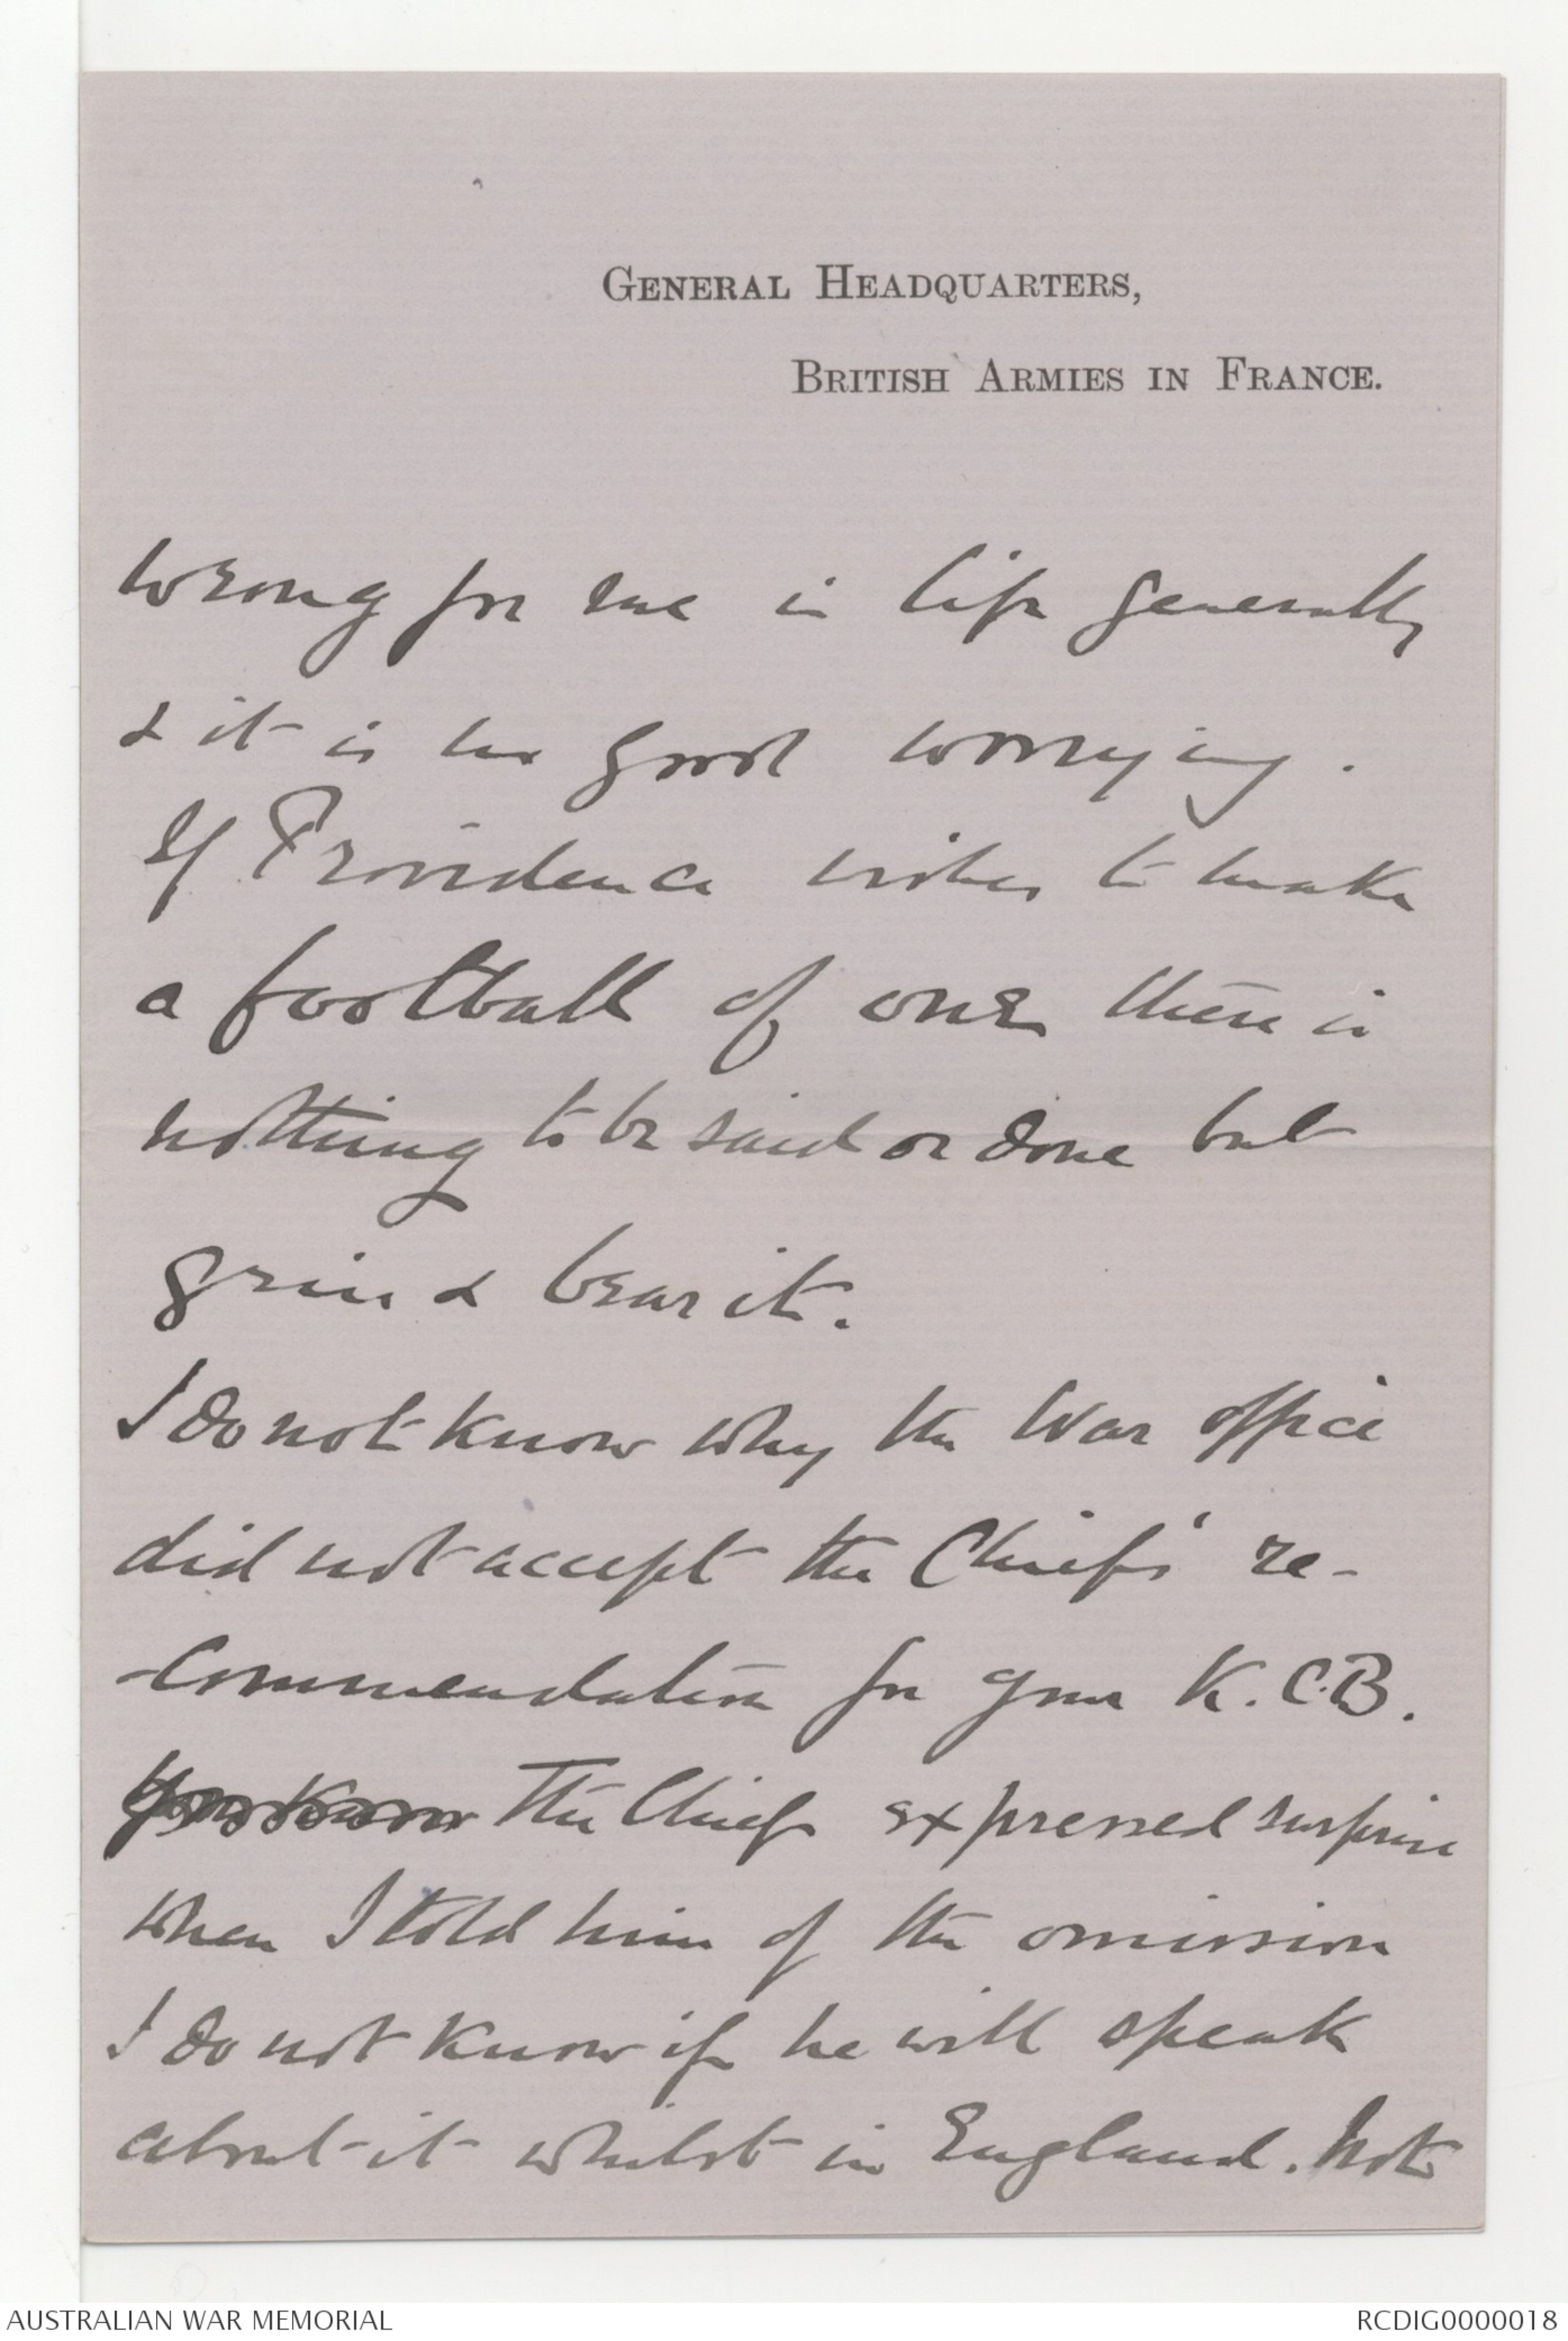 GENERAL HEADQUARTERS,
BRITISH ARMIES IN FRANCE.
wrong for me in life generally
& it is no good worrying.
If Providence wishes to make
a football of one there is
nothing to be said or done but
grin & bear it.
I do not know why the War office
did not accept the Chiefs' re-
-commendation for your K.C.B.
You know The Chief expressed surprise
when I told him of the omission
I do not know if he will speak
about it whilst in England. Not
AUSTRALIAN WAR MEMORIAL
RCDIG0000018